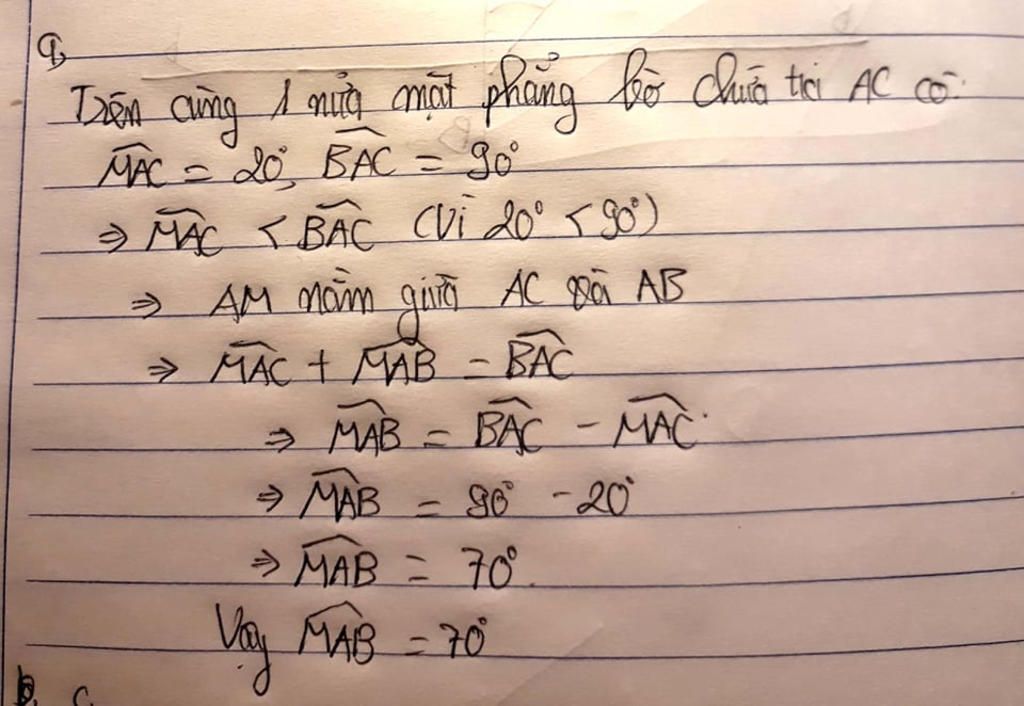 a,
Trên cùng 1 nửa mặt phẳng bờ chứa tia AC có:
M̂AC = 20°, B̂AC = 90°
⇒ M̂AC < B̂AC (vì 20° < 90°)
⇒ AM nằm giữa AC và AB
⇒ M̂AC + M̂AB = B̂AC
⇒ M̂AB = B̂AC - M̂AC
⇒ M̂AB = 90° - 20°
⇒ M̂AB = 70°.
Vậy M̂AB = 70°
b,